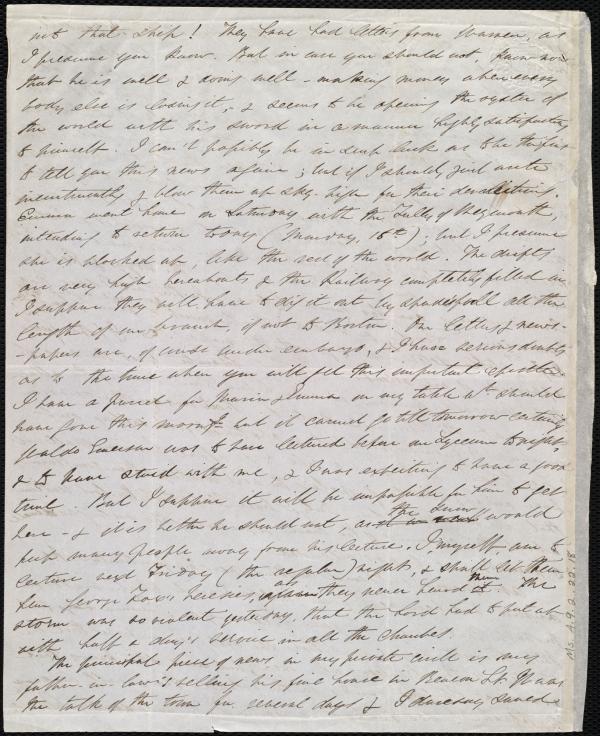 not that ship! They have had letters from Warren, as
I presume you know. But in case you should not, know now
that he is well & doing well - making money when every
body else is losing it, - & seems to be opening the oyster of
the world with his sword in a manner highly satisfactory
to himself. I can't possibly be in such luck as to be the first
to tell you this news again; but if I should, just write
incontinently & blow them up sky-high for their dereliction.
Emma went home on Saturday with the Tufts of Weymouth,
intending to return today (Monday, 18th); but I presume
she is blocked up, like the rest of the world. The drifts
are very high hereabouts & the Railway completely filled in.
I suppose they will have to dig it out by spadesfull all the
length of our branch, if not to Boston. Our letters & news-
-papers are, of course under embargo, & I have serious doubts
as to the time when you will get this important epistle.
I have a parcel for Maria & Emma on my table wh. should
have gone this morng. but it cannot go till tomorrow certainly.
Waldo Emerson was to have lectured before our Lyceum to night,
& to have staid with me, & I was expecting to have a good
time. But I suppose it will be impossible for him to get
here - & it is better he should not, as the snow would
keep many people away from his lecture. I, myself, am to
lecture next Friday (the regular) night, & shall let them
hear George Fox's leeches, as they never heard them. The
storm was so violent yesterday, that the Lord had to put up
with half a day's service in all the churches.
The principal piece of news in my private circle is my
father-in-law's selling his fine house in Beacon St. It was
the talk of the town for several days & I daresay saved
Ms. A.9.2.22.18